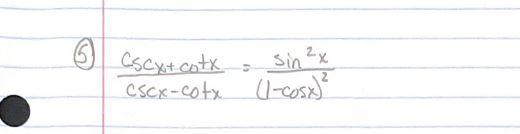 ⑤ cscx+cotx / cscx-cotx = sin²x / (1-cosx)²